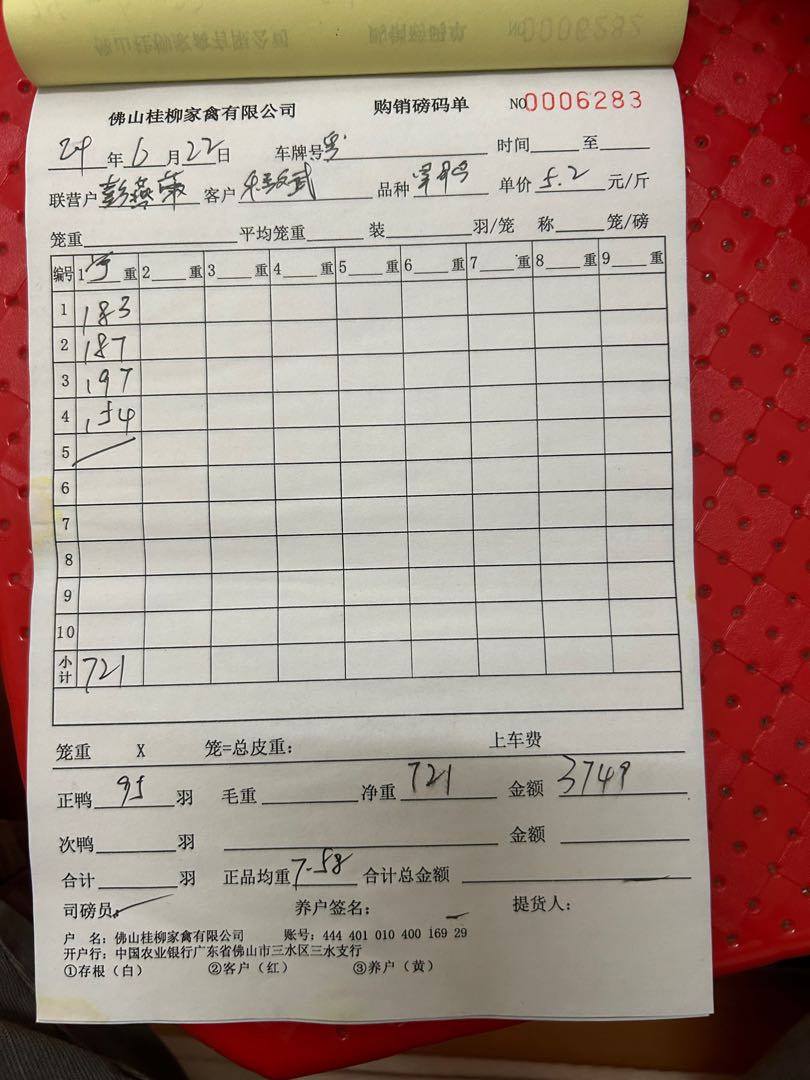 佛山桂柳家禽有限公司 购销磅码单 NO0006283
24年6月22日 车牌号粤 时间 至
联营户彭燕 客户 品种 单价5.2元/斤
笼重 平均笼重 装 羽/笼 称 笼/磅
编号 1 重 2 重 3 重 4 重 5 重 6 重 7 重 8 重 9 重
1 183
2 187
3 197
4 154
5
6
7
8
9
10
小计 721
笼重 X 笼=总皮重: 上车费
正鸭 95 羽 毛重 净重 721 金额 3749
次鸭 羽 金额
合计 羽 正品均重 7.58 合计总金额
司磅员: 养户签名: 提货人:
户 名: 佛山桂柳家禽有限公司 账号: 444 401 010 400 169 29
开户行: 中国农业银行广东省佛山市三水区三水支行
①存根(白) ②客户(红) ③养户(黄)